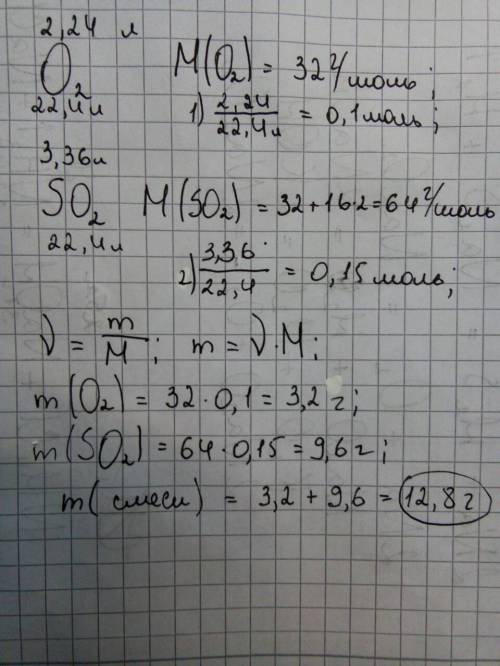 2,24 л
O₂ M(O₂) = 32 г/моль;
22,4 л 1) 2,24/22,4л = 0,1 моль;
3,36 л
SO₂ M(SO₂) = 32+16·2=64 г/моль
22,4 л
2) 3,36/22,4 = 0,15 моль;
ν = m/M; m = ν·M;
m(O₂) = 32·0,1 = 3,2 г;
m(SO₂) = 64·0,15 = 9,6 г;
m(смеси) = 3,2 + 9,6 = 12,8 г